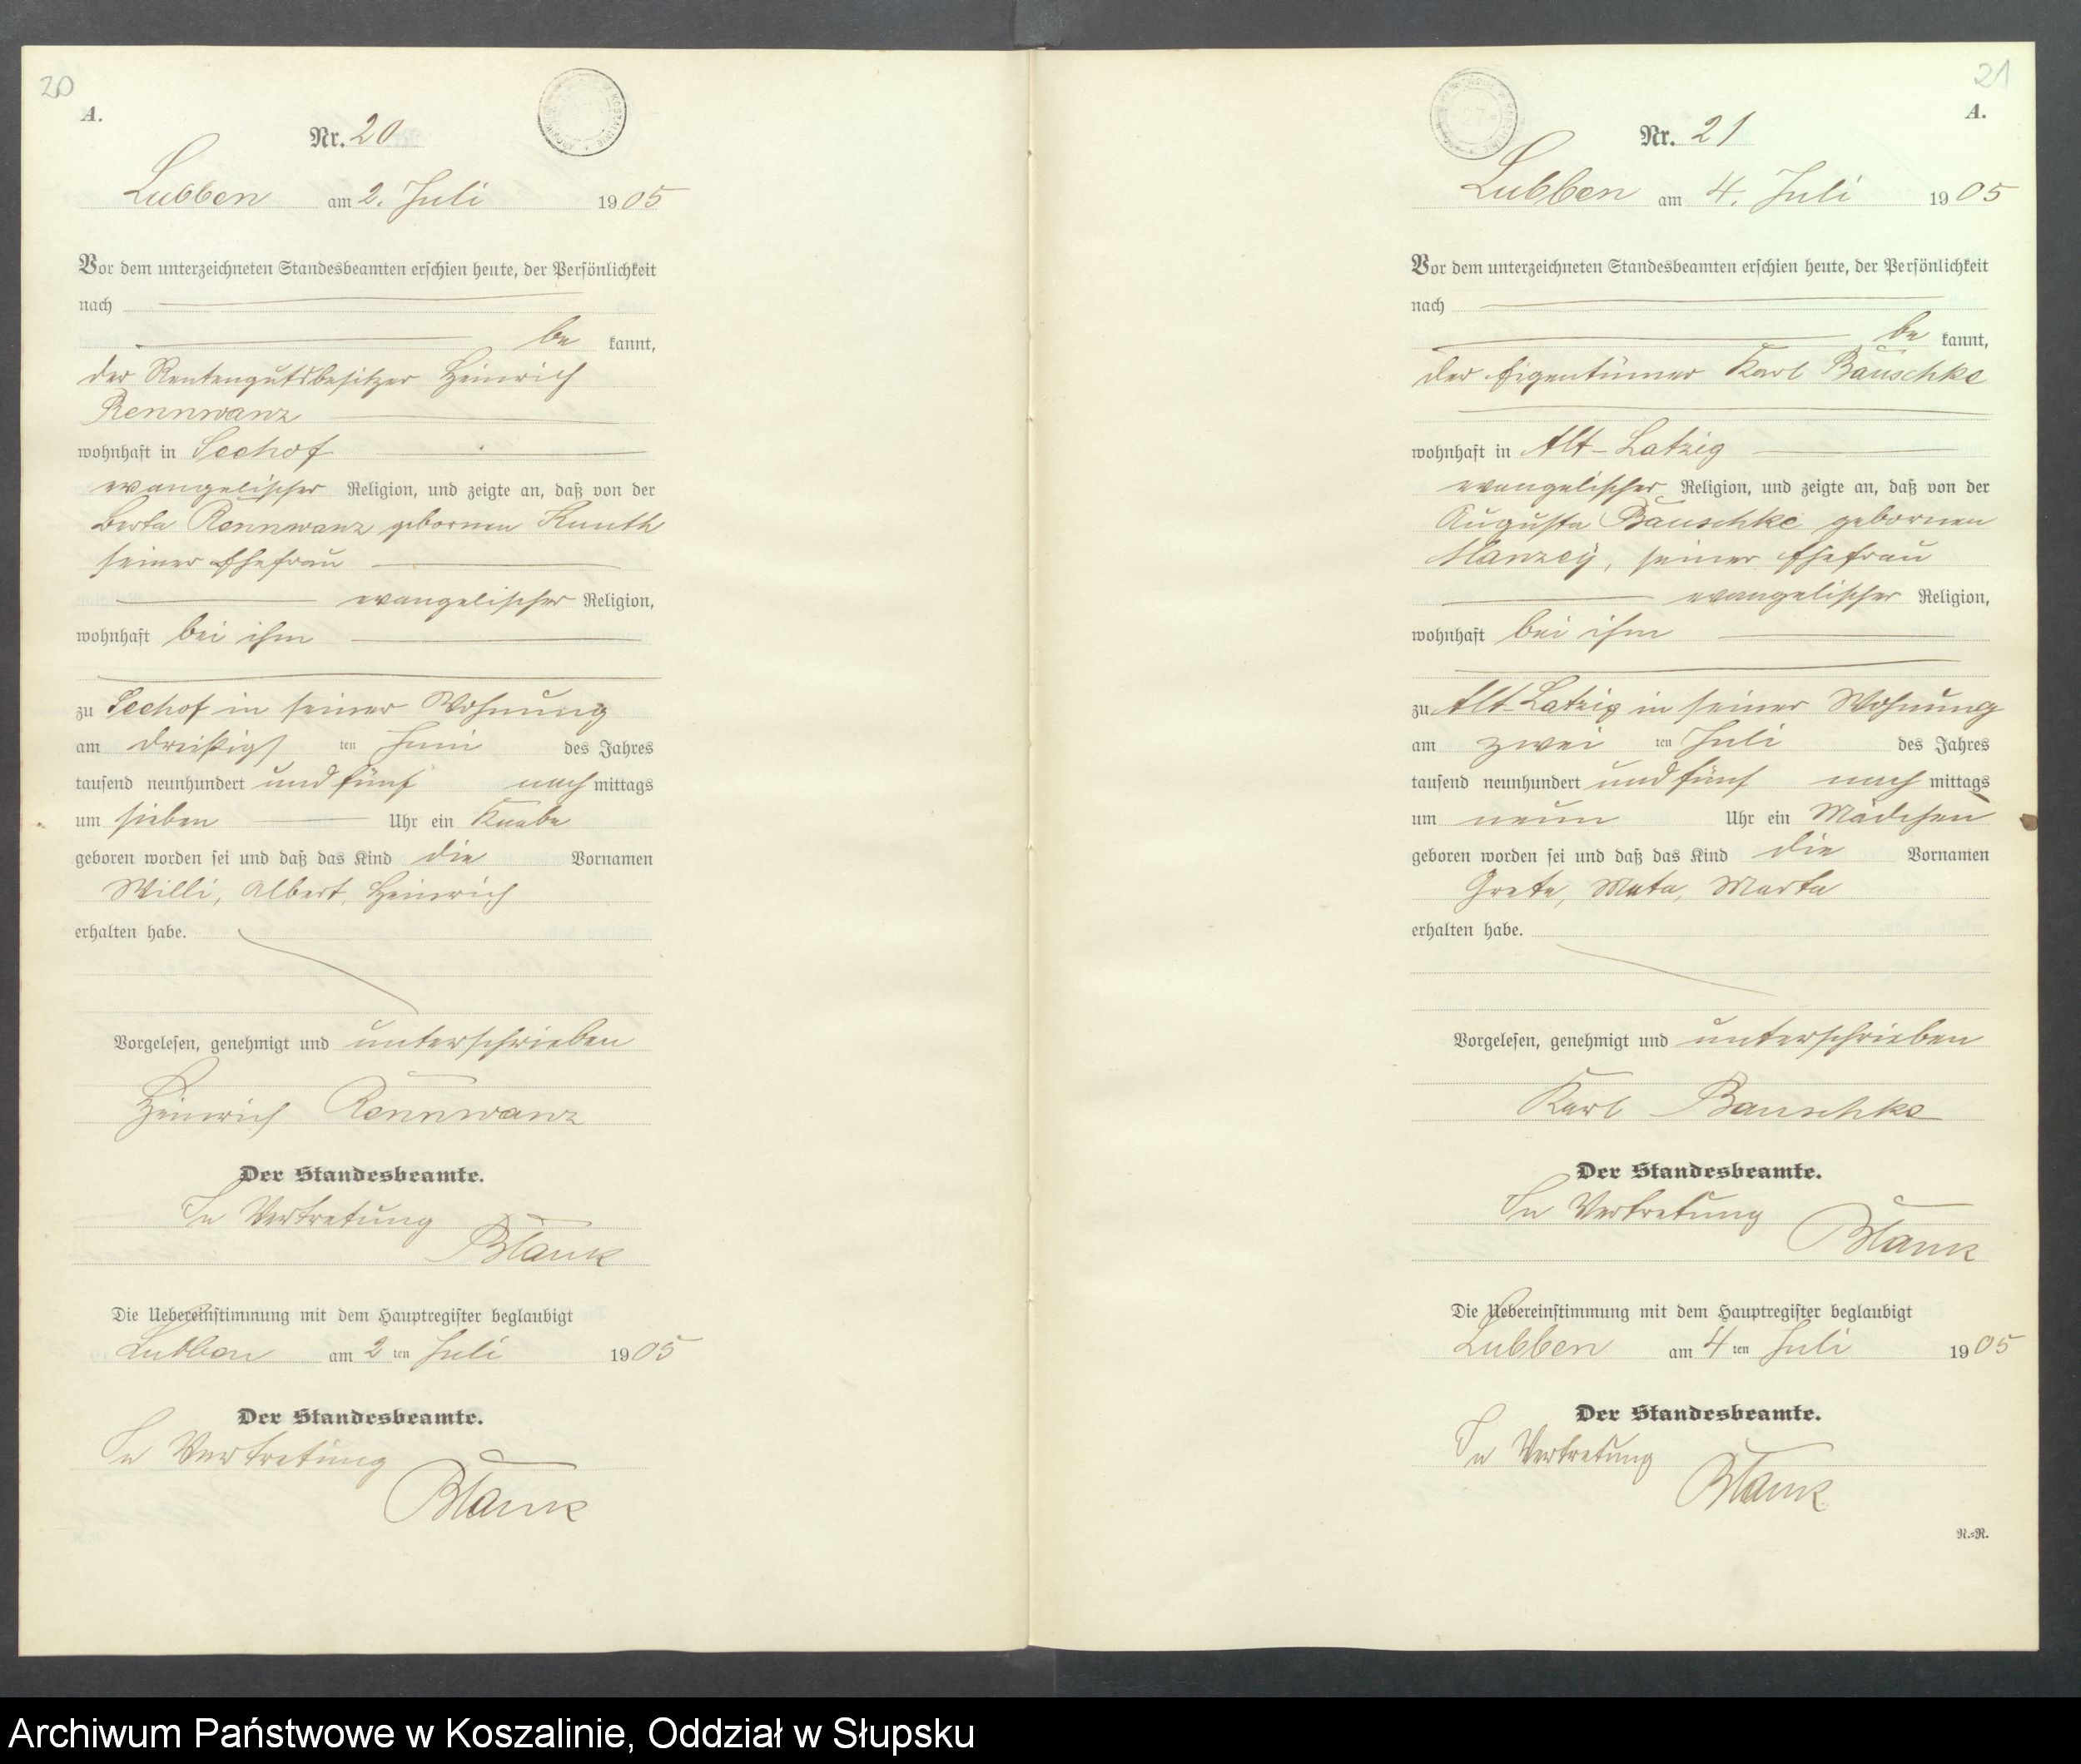 20
A.
Nr. 20
Lubben am 2. Juli 1905
Vor dem unterzeichneten Standesbeamten erschien heute, der Persönlichkeit
nach
be kannt,
der Rentengutsbesitzer Heinrich
Rennwanz
wohnhaft in Seehof
evangelischer Religion, und zeigte an, daß von der
Berta Rennwanz gebornen Kunth
seiner Ehefrau
evangelischer Religion,
wohnhaft bei ihm
zu Seehof in seiner Wohnung
am dreißigs ten Juni des Jahres
tausend neunhundert und fünf nach mittags
um sieben Uhr ein Knabe
geboren worden sei und daß das Kind die Vornamen
Willi, Albert, Heinrich
erhalten habe.
Vorgelesen, genehmigt und unterschrieben
Heinrich Rennwanz
Der Standesbeamte.
In Vertretung
Blank
Die Uebereinstimmung mit dem Hauptregister beglaubigt
Lubben am 2 ten Juli 1905
Der Standesbeamte.
In Vertretung
Blank
21
A.
Nr. 21
Lubben am 4. Juli 1905
Vor dem unterzeichneten Standesbeamten erschien heute, der Persönlichkeit
nach
be kannt,
der Eigentümer Karl Bauschke
wohnhaft in Alt-Latzig
evangelischer Religion, und zeigte an, daß von der
Augusta Bauschke gebornen
Manzey, seiner Ehefrau
evangelischer Religion,
wohnhaft bei ihm
zu Alt-Latzig in seiner Wohnung
am zwei ten Juli des Jahres
tausend neunhundert und fünf nach mittags
um neun Uhr ein Mädchen
geboren worden sei und daß das Kind die Vornamen
Grete, Meta, Marta
erhalten habe.
Vorgelesen, genehmigt und unterschrieben
Karl Bauschke
Der Standesbeamte.
In Vertretung
Blank
Die Uebereinstimmung mit dem Hauptregister beglaubigt
Lubben am 4 ten Juli 1905
Der Standesbeamte.
In Vertretung
Blank
R.=R.
Archiwum Państwowe w Koszalinie, Oddział w Słupsku